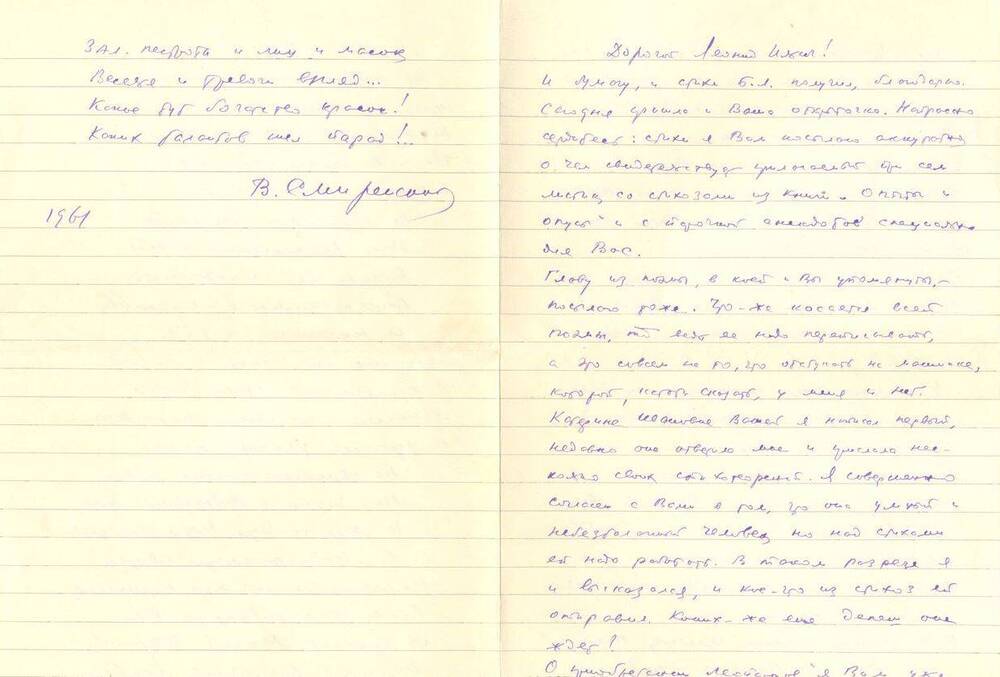 Зал. пестрота и лиц и масок
Веселье и тревоги взгляд...
Какое тут богатство красок!
Каких талантов шел парад!...
В. Смиренский
1961
Дорогой Леонид Ильич!
И бумагу, и стихи Б.Л. получил, благодарю.
Сегодня пришла и Ваша открыточка. Напрасно
сердитесь: стихи я Вам посылаю аккуратно
о чем свидетельствует прилагаемый при сем
листик со стихами из книги „Опыты и
опусы" и с парочкой анекдотов специально
для Вас.
Главу из поэмы, в коей и Вы упомянуты,–
посылаю тоже. Что-же касается всей
поэмы, то ведь ее надо переписывать,
а это совсем не то, что отстукать на машинке,
которой, кстати сказать, у меня и нет.
Катерине Ивановне Вашей я написал первый,
недавно она ответила мне и прислала нес-
колько своих стихотворений. Я совершенно
согласен с Вами в том, что она умный и
небезталанный человек, но над стихами
ей надо работать. В таком разрезе я
и высказался, и кое-что из стихов ей
отправил. Каких-же еще денег она
ждет!
О приобретении я Вам уже